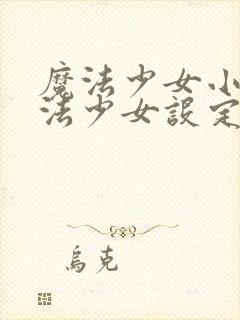 魔法少女小
法少女設定
烏克